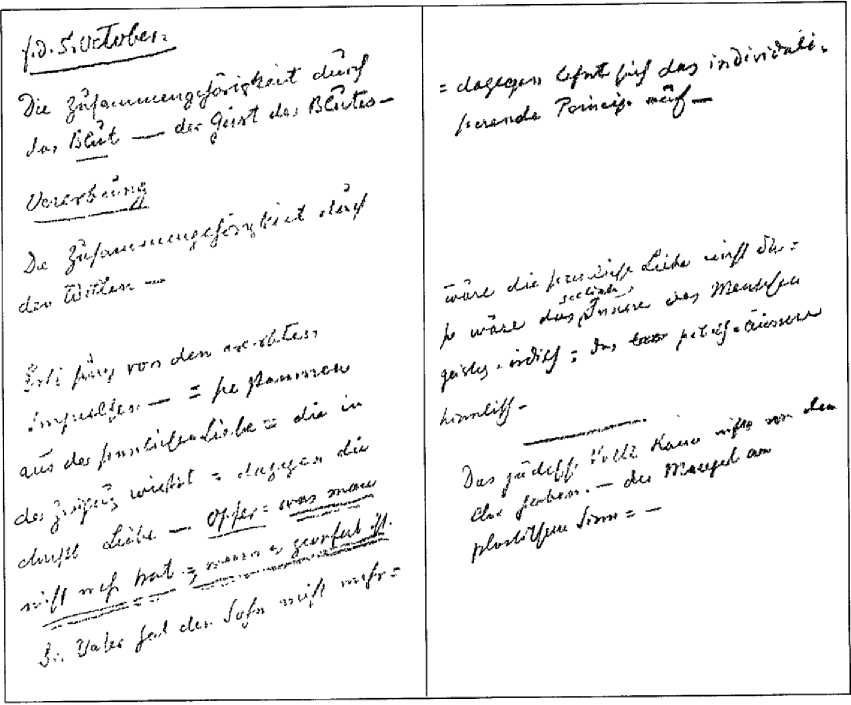 f. d. 5. October:
Die Zusammengehörigkeit durch
das Blut — der Geist des Blutes —
Vererbung
Die Zusammengehörigkeit durch
den Willen —
von den ererbten
Impulsen — = sie stammen
aus der sinnlichen Liebe = die in
der wirkt = dagegen die
Liebe — Opfer = was man
nicht mehr hat = wenn es geopfert ist.
Der Vater hat den Sohn nicht mehr =
= dagegen lehnt sich das individuali-
sierende Princip auf —
wäre die Liebe nicht da =
so wäre das seelische Innere des Menschen
geistig-irdisch = das physisch-Äussere
himmlisch —
Das jüdische Volk kam nichts von dem
haben. — der Mangel am
plastischen Sinn = —